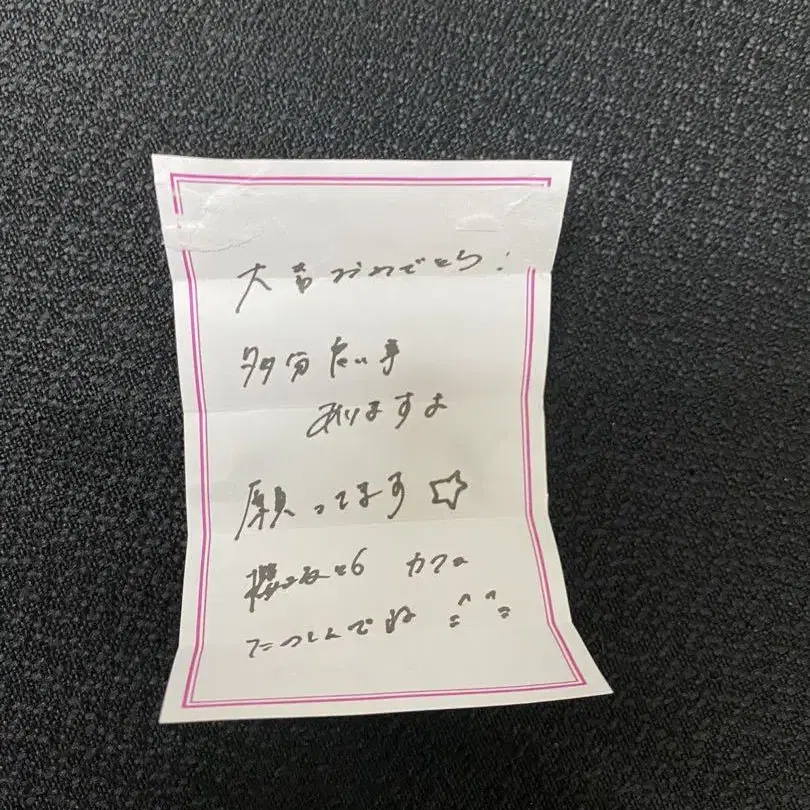 大吉おめでとう!
多分たい事
ありますよ
願ってます☆
櫻 カフェ
たのしんでね